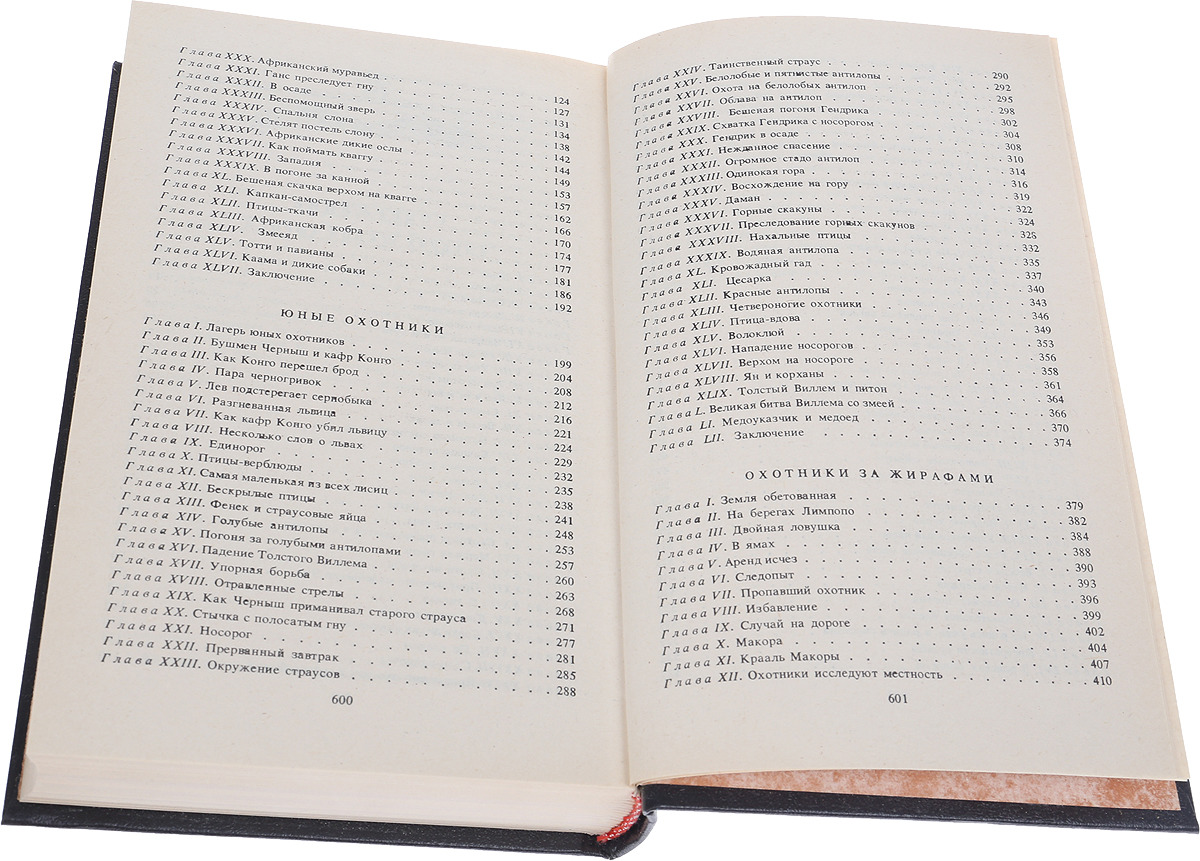 Глава XXX. Африканский муравьед . . . 124
Глава XXXI. Ганс преследует гну . . . 127
Глава XXXII. В осаде . . . 131
Глава XXXIII. Беспомощный зверь . . . 134
Глава XXXIV. Спальня слона . . . 138
Глава XXXV. Стелят постель слону . . . 142
Глава XXXVI. Африканские дикие ослы . . . 144
Глава XXXVII. Как поймать кваггу . . . 149
Глава XXXVIII. Западня . . . 153
Глава XXXIX. В погоне за канной . . . 157
Глава XL. Бешеная скачка верхом на квагге . . . 162
Глава XLI. Капкан-самострел . . . 166
Глава XLII. Птицы-ткачи . . . 170
Глава XLIII. Африканская кобра . . . 174
Глава XLIV. Змееяд . . . 177
Глава XLV. Тотти и павианы . . . 181
Глава XLVI. Каама и дикие собаки . . . 186
Глава XLVII. Заключение . . . 192
ЮНЫЕ ОХОТНИКИ
Глава I. Лагерь юных охотников . . . 199
Глава II. Бушмен Черныш и кафр Конго . . . 204
Глава III. Как Конго перешел брод . . . 208
Глава IV. Пара черногривок . . . 212
Глава V. Лев подстерегает сернобыка . . . 216
Глава VI. Разгневанная львица . . . 221
Глава VII. Как кафр Конго убил львицу . . . 224
Глава VIII. Несколько слов о львах . . . 229
Глава IX. Единорог . . . 232
Глава X. Птицы-верблюды . . . 235
Глава XI. Самая маленькая из всех лисиц . . . 238
Глава XII. Бескрылые птицы . . . 241
Глава XIII. Фенек и страусовые яйца . . . 248
Глава XIV. Голубые антилопы . . . 253
Глава XV. Погоня за голубыми антилопами . . . 257
Глава XVI. Падение Толстого Виллема . . . 260
Глава XVII. Упорная борьба . . . 263
Глава XVIII. Отравленные стрелы . . . 268
Глава XIX. Как Черныш приманивал старого страуса . . . 271
Глава XX. Стычка с полосатым гну . . . 277
Глава XXI. Носорог . . . 281
Глава XXII. Прерванный завтрак . . . 285
Глава XXIII. Окружение страусов . . . 288
600
Глава XXIV. Таинственный страус . . . 290
Глава XXV. Белолобые и пятнистые антилопы . . . 292
Глава XXVI. Охота на белолобых антилоп . . . 295
Глава XXVII. Облава на антилоп . . . 298
Глава XXVIII. Бешеная погоня Гендрика . . . 302
Глава XXIX. Схватка Гендрика с носорогом . . . 304
Глава XXX. Гендрик в осаде . . . 308
Глава XXXI. Нежданное спасение . . . 310
Глава XXXII. Огромное стадо антилоп . . . 314
Глава XXXIII. Одинокая гора . . . 316
Глава XXXIV. Восхождение на гору . . . 319
Глава XXXV. Даман . . . 322
Глава XXXVI. Горные скакуны . . . 324
Глава XXXVII. Преследование горных скакунов . . . 328
Глава XXXVIII. Нахальные птицы . . . 332
Глава XXXIX. Водяная антилопа . . . 335
Глава XL. Кровожадный гад . . . 337
Глава XLI. Цесарка . . . 340
Глава XLII. Красные антилопы . . . 343
Глава XLIII. Четвероногие охотники . . . 346
Глава XLIV. Птица-вдова . . . 349
Глава XLV. Волоклюй . . . 353
Глава XLVI. Нападение носорогов . . . 356
Глава XLVII. Верхом на носороге . . . 358
Глава XLVIII. Ян и корханы . . . 361
Глава XLIX. Толстый Виллем и питон . . . 364
Глава L. Великая битва Виллема со змеей . . . 366
Глава LI. Медоуказчик и медоед . . . 370
Глава LII. Заключение . . . 374
ОХОТНИКИ ЗА ЖИРАФАМИ
Глава I. Земля обетованная . . . 379
Глава II. На берегах Лимпопо . . . 382
Глава III. Двойная ловушка . . . 384
Глава IV. В ямах . . . 388
Глава V. Аренд исчез . . . 390
Глава VI. Следопыт . . . 393
Глава VII. Пропавший охотник . . . 396
Глава VIII. Избавление . . . 399
Глава IX. Случай на дороге . . . 402
Глава X. Макора . . . 404
Глава XI. Крааль Макоры . . . 407
Глава XII. Охотники исследуют местность . . . 410
601